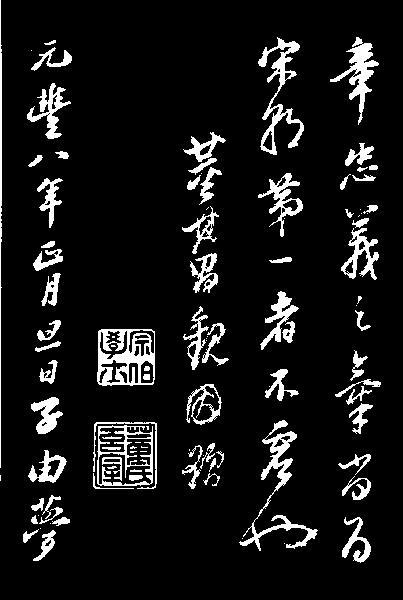 章忠義之氣當為
宋朝第一者不虛也
董其昌觀因題
宗伯學士
董氏玄宰
元豐八年正月旦日子由夢